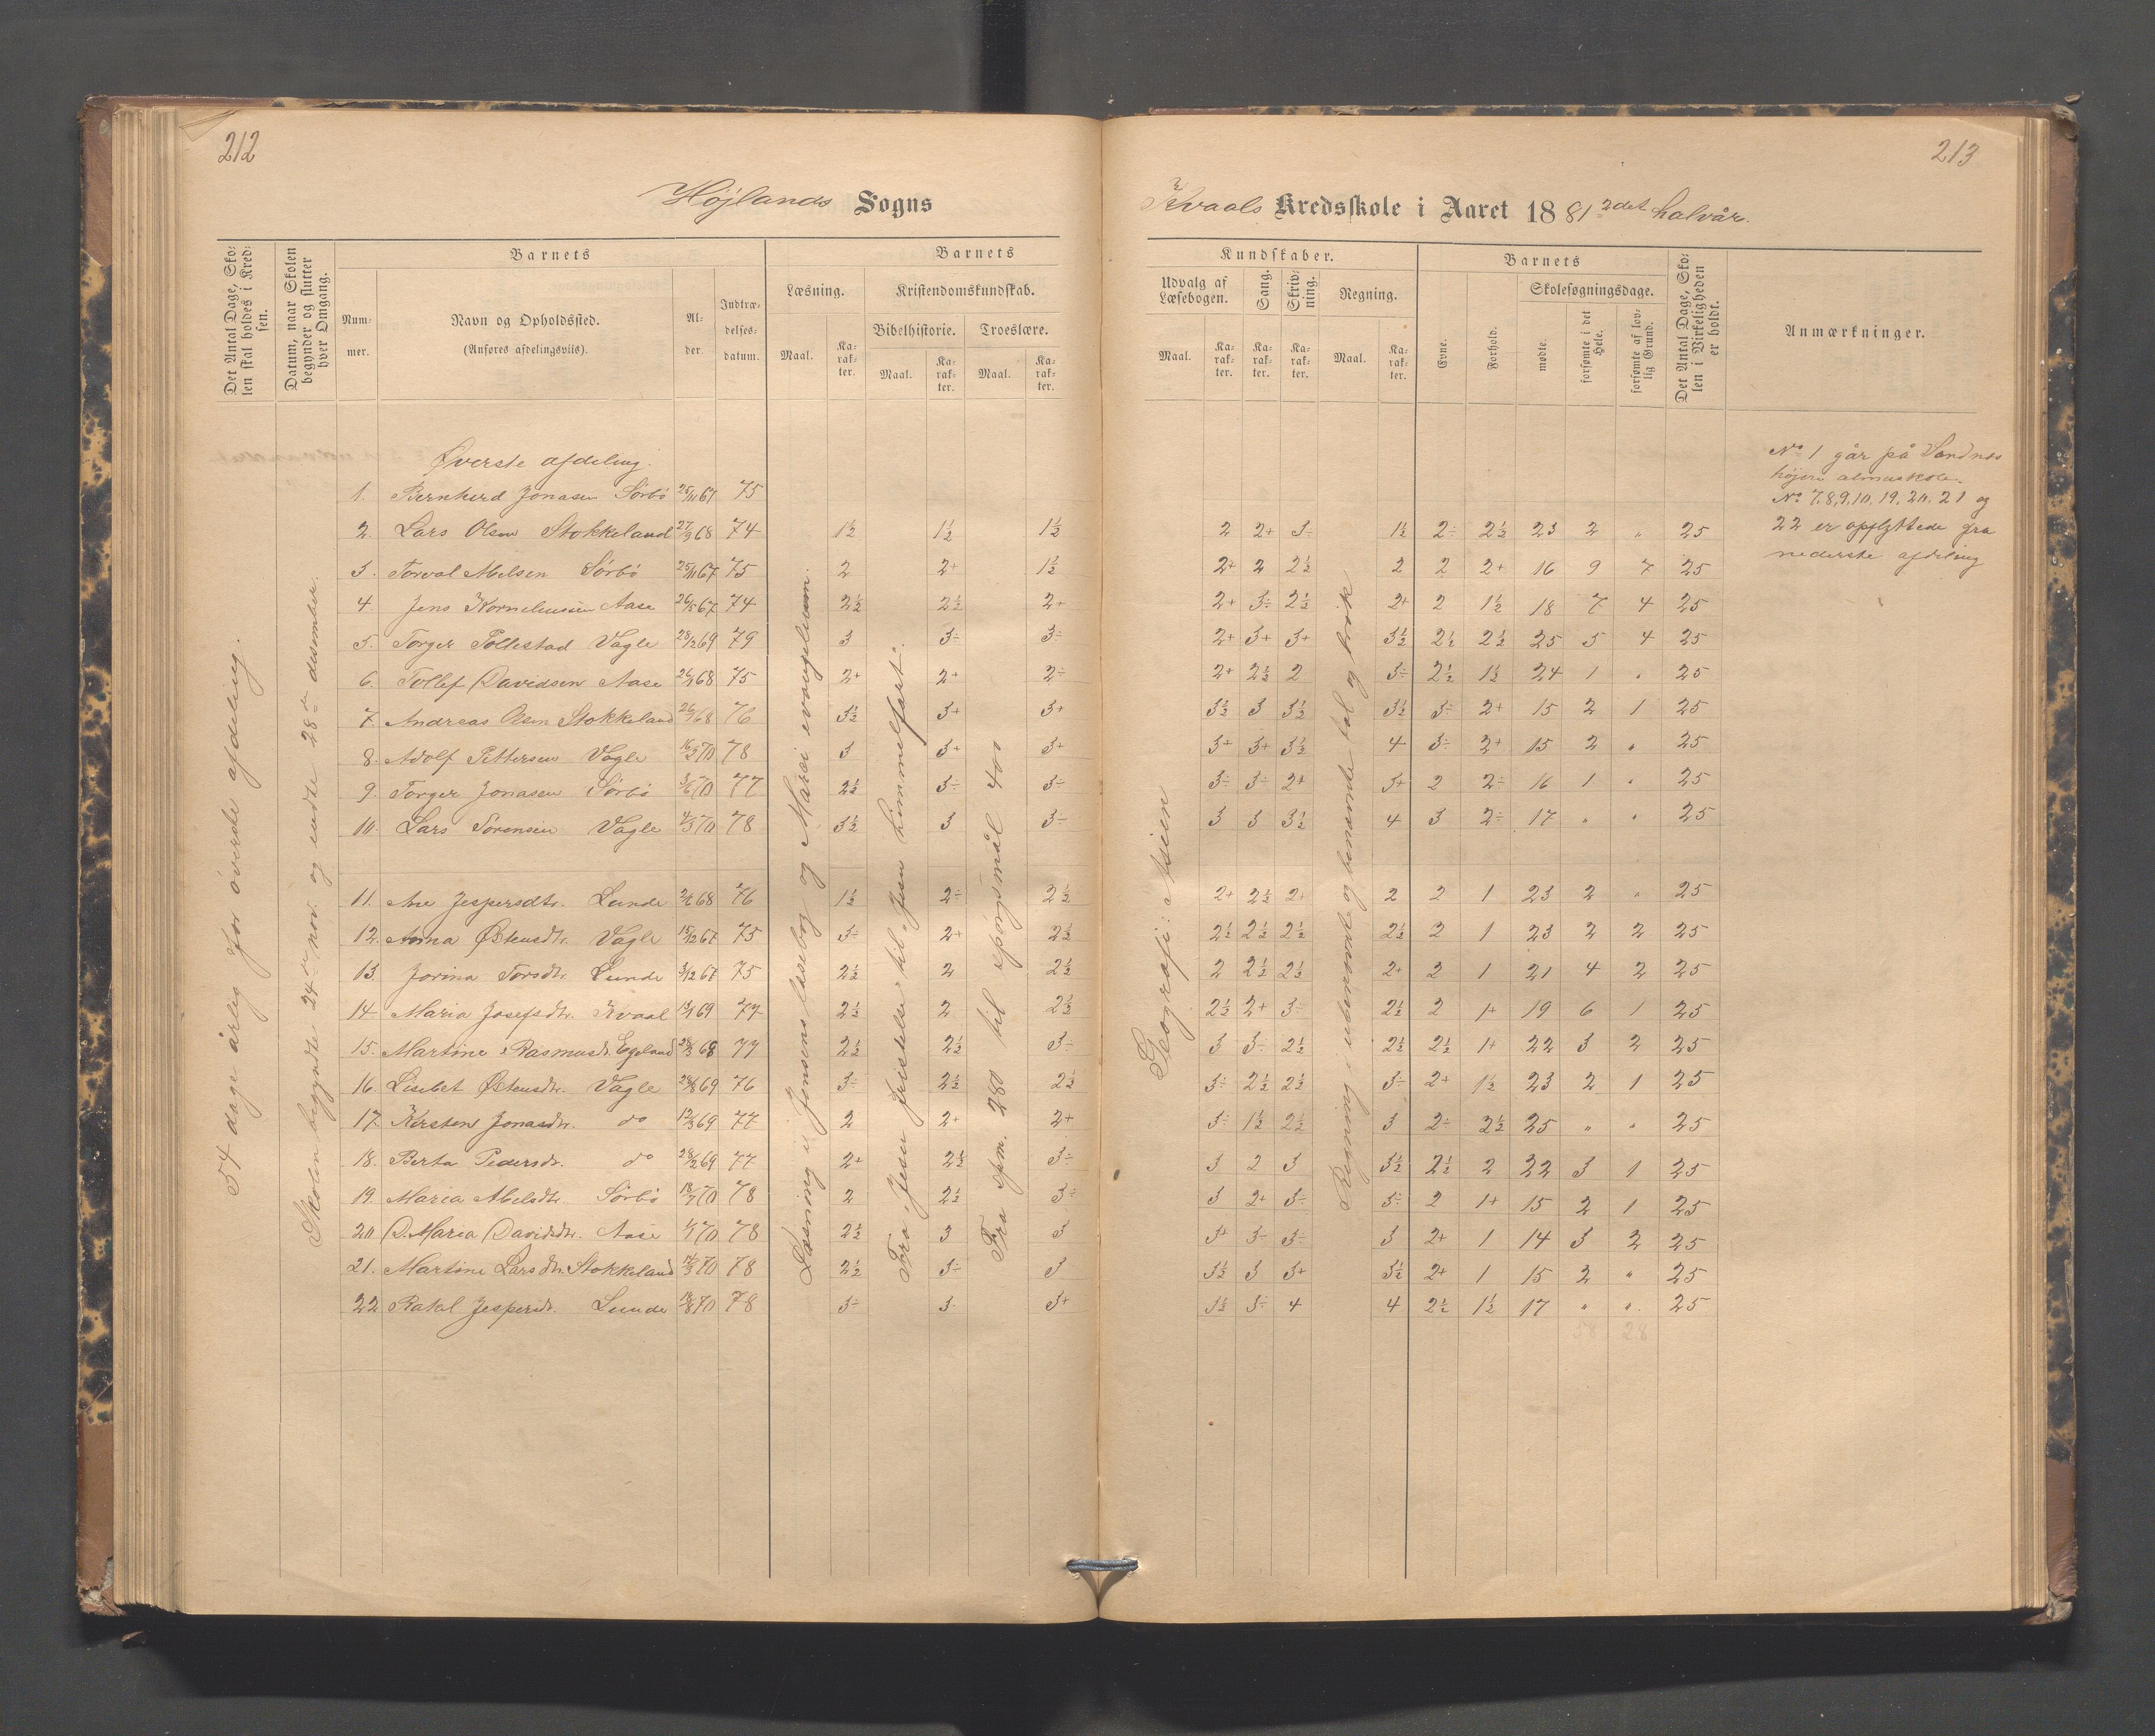 212
213
Højlands Sogns
Kvaals Kredsskole i Aaret 1881 2det halvår.
Det Antal Dage, Skolen skal holdes i Kredsen.
Datum, naar Skolen begynder og slutter hver Omgang.
Barnets
Nummer.
Navn og Opholdssted.
(Anføres afdelingsviis).
Alder.
Indtrædelsesdatum.
Barnets
Læsning.
Kristendomskundskab.
Bibelhistorie.
Troeslære.
Maal.
Karakter.
Maal.
Karakter.
Maal.
Karakter.
Kundskaber.
Udvalg af Læsebogen.
Sang.
Skrivning.
Regning.
Maal.
Karakter.
Karakter.
Karakter.
Maal.
Karakter.
Barnets
Evne.
Forhold.
Skolesøgningsdage.
mødte.
forsømte i det Hele.
forsømte af lovlig Grund.
Det Antal Dage, Skolen i Virkeligheden er holdt.
Anmærkninger.
54 dage årlig for øverste afdeling.
Skolen begyndte 24de nov. og endte 28de desember.
Læsning i Jensens læsebog og Marci evangelium.
Fra "Jesu fristelse" til "Jesu himmelfart".
Fra spm. 280 til spørgsmål 400
Geografi: Asien
Regning i ubenævnte og benævnte tal og brøk
Øverste afdeling.
1. Bernhard Jonasen Sørbø 25/11 67 75
2. Lars Olsen Stokkeland 27/9 68 74 1½ 1½ 1½ 2 2+ 3 1½ 2÷ 2½ 23 2 " 25
3. Torval Abelsen Sørbø 25/11 67 75 2 2+ 1½ 2+ 2 2½ 2 2 2+ 16 9 7 25
4. Jens Korneliussen Aase 26/5 67 74 2½ 2½ 2+ 2+ 3÷ 2½ 2+ 2 1½ 18 7 4 25
5. Torger Pollestad Vagle 28/12 69 79 3 3÷ 3÷ 2+ 3+ 3+ 3½ 2½ 2½ 25 5 4 25
6. Tollef Davidsen Aase 68 75 2+ 2+ 2÷ 2+ 2½ 2 3÷ 2½ 1½ 24 1 " 25
7. Andreas Olsen Stokkeland 68 76 3½ 3+ 3+ 3½ 3 3½ 3½ 3÷ 2+ 15 2 1 25
8. Adolf Pettersen Vagle 16/2 70 78 3 3+ 3+ 3+ 3+ 3½ 4 3÷ 2+ 15 2 " 25
9. Torger Jonasen Sørbø 3/6 70 77 2½ 3÷ 3÷ 3÷ 3÷ 2+ 3+ 2 2÷ 16 1 " 25
10. Lars Sørensen Vagle 70 78 3½ 3 3÷ 3 3 3½ 4 3 2÷ 17 " " 25
11. Ane Jespersdtr. Lunde 68 76 1½ 2÷ 2½ 2+ 2½ 2+ 2 2 1 23 2 " 25
12. Anna Østensdtr. Vagle 15/12 67 75 3÷ 2+ 2½ 2½ 2½ 2½ 2½ 2 1 23 2 2 25
13 Jorina Torsdtr. Lunde 3/12 67 75 2½ 2 2½ 2 2½ 2½ 2+ 2 1 21 4 2 25
14 Maria Josefsdtr. Kvaal 69 77 2½ 2 2½ 2½ 2+ 3÷ 2½ 2 1+ 19 6 1 25
15. Martine Rasmusdtr. Egeland 28/3 68 77 2½ 2½ 3÷ 3 3÷ 2½ 2½ 2½ 1+ 22 3 2 25
16 Lisebet Østensdtr. Vagle 28/8 69 76 3÷ 2½ 2½ 3÷ 2½ 2½ 3÷ 2+ 1½ 23 2 1 25
17. Kirsten Jonasdtr. do 69 77 2 2+ 2+ 3÷ 1½ 2½ 3 2÷ 2½ 25 " " 25
18. Berta Pedersdtr. do 28/12 69 77 2+ 2½ 3÷ 3 2 3 3½ 2½ 2 22 3 1 25
19. Maria Abelsdtr. Sørbø 18/7 70 78 2 2½ 3÷ 3 2+ 3÷ 3÷ 2 1+ 15 2 1 25
20 D. Maria Davidsdtr. Aase 70 78 2½ 3 3 3+ 3÷ 3÷ 3 2+ 1 14 3 2 25
21. Martine Larsdtr. Stokkeland 70 78 2½ 3÷ 3 3½ 3 3+ 3½ 2+ 1 15 2 " 25
22 Rakel Jespersdtr. Lunde 70 78 3÷ 3 3+ 3½ 3÷ 4 4 2½ 1½ 17 " " 25
58 28
No 1 går på Sandnes
højere almueskole.
No 7.8,9,10,19,20,21 og
22 er opflyttede fra
nederste afdeling